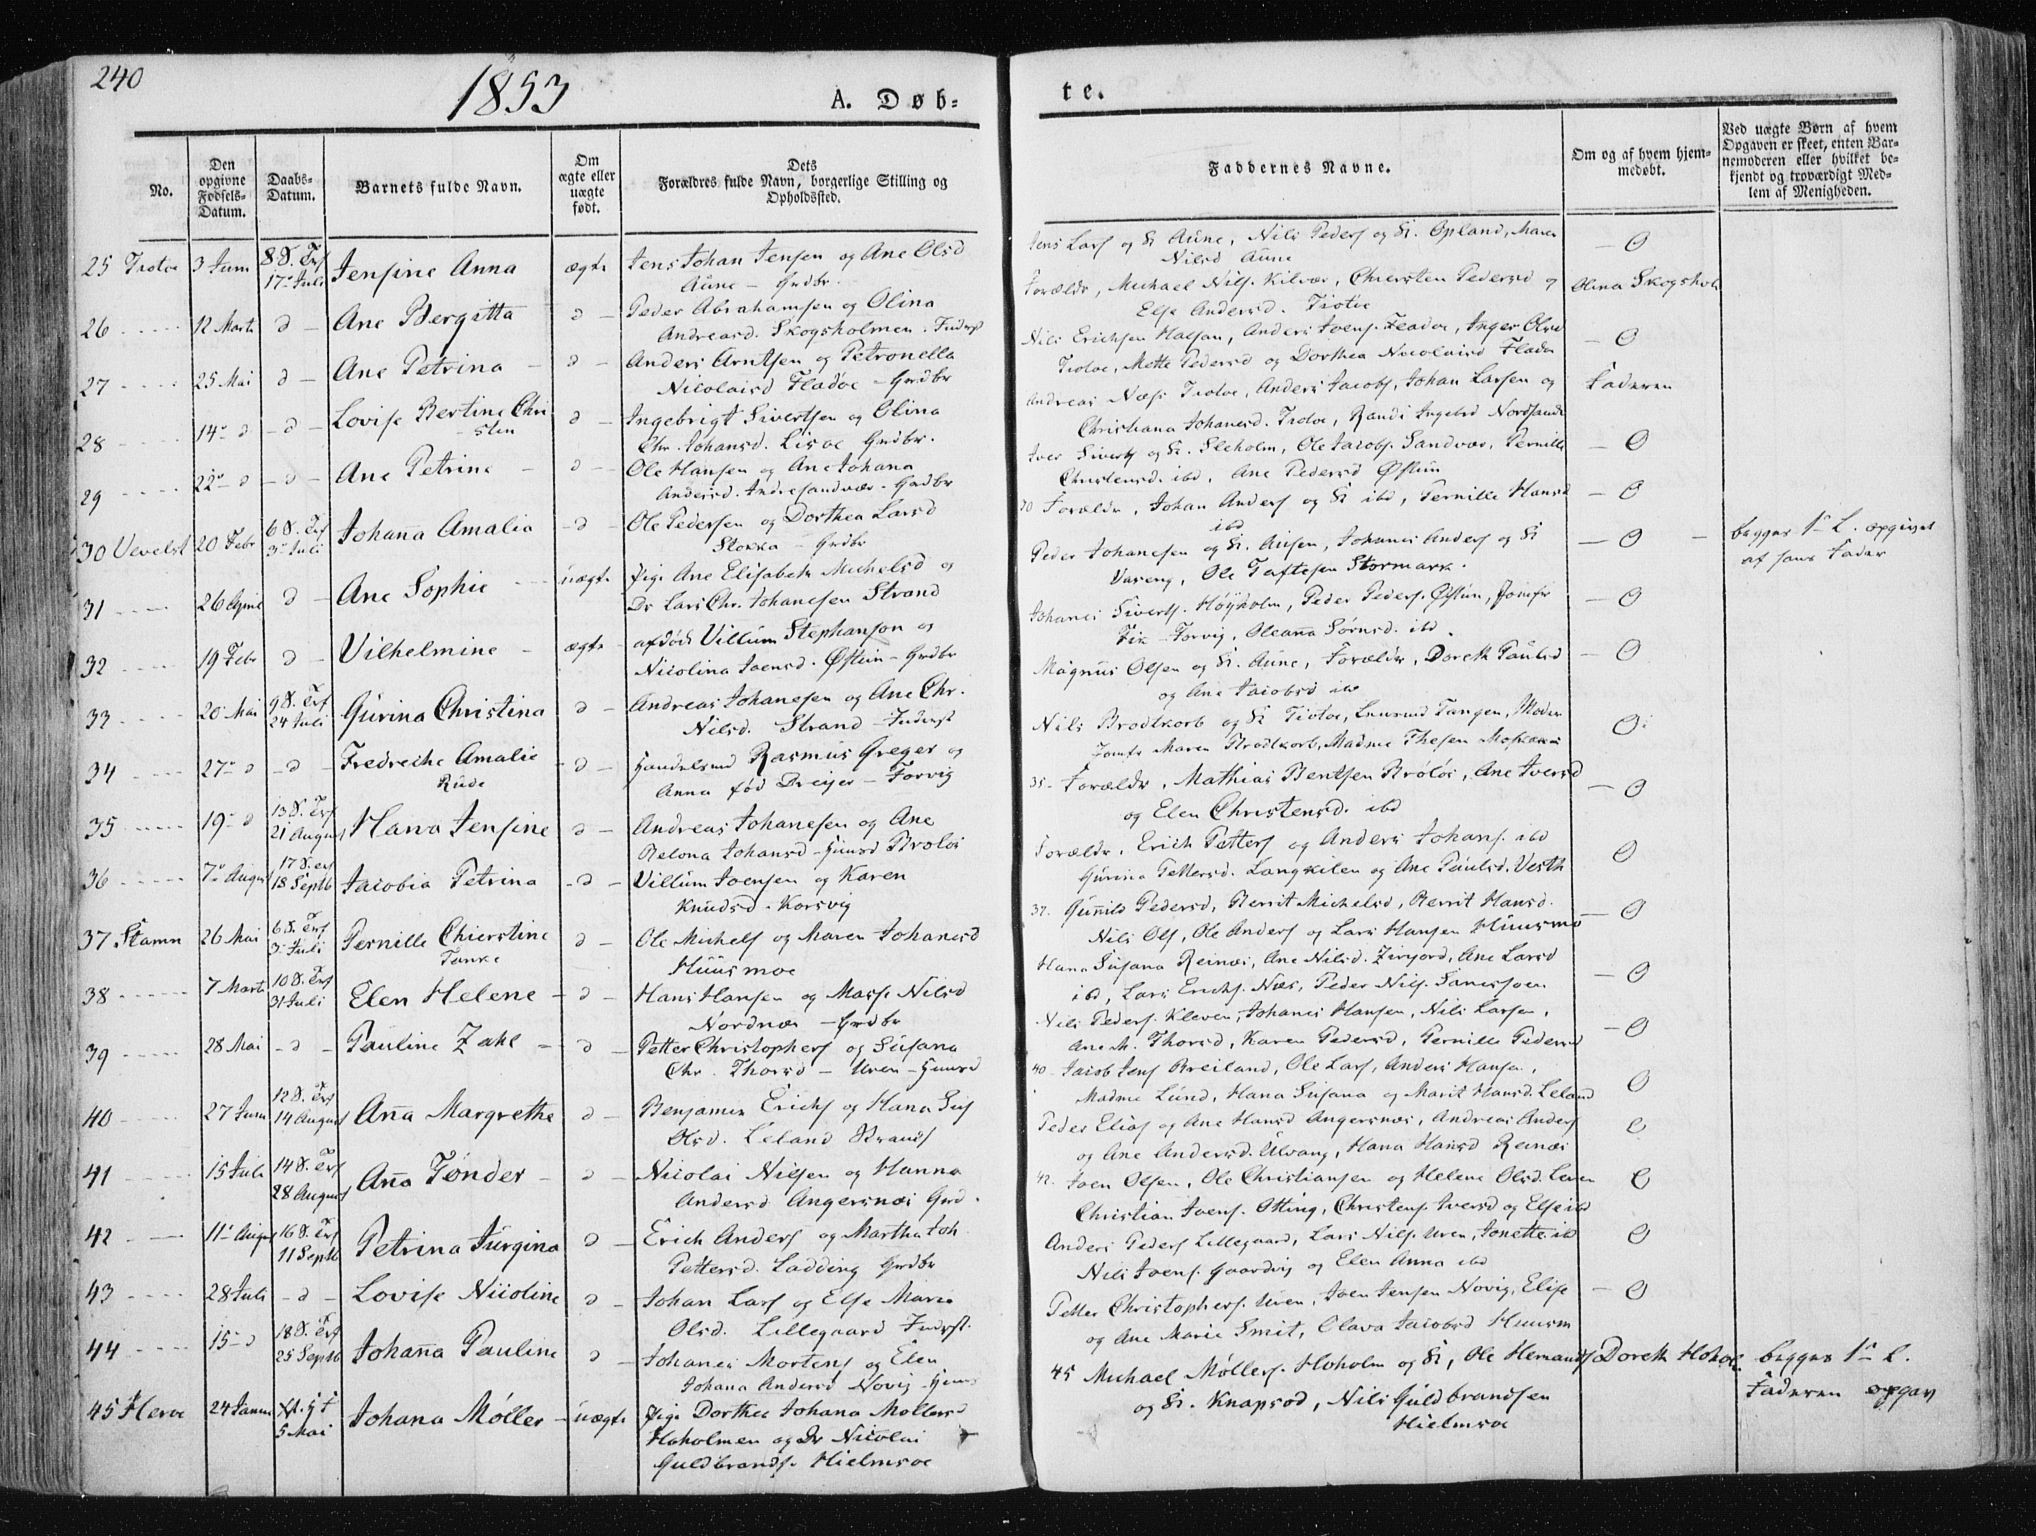 240
1853
A. Døb-
te.
No.
Den opgivne Fødsels-Datum.
Daabs-Datum.
Barnets fulde Navn.
Om ægte eller uægte født.
Dets Forældres fulde Navn, borgerlige Stilling og Opholdssted.
Faddernes Navne.
Om og af hvem hjem-medøbt.
Ved uægte Børn af hvem Opgaven er skeet, enten Bar-nemoderen eller hvilket be-kjendt og troværdigt Med-lem af Menigheden.
25 Tiotøe 3 Juni 8 S. Trf 17 Juli Jensine Anna ægte Jens Johan Jensen og Ane Olsd
Aune - Grdbr.
Jens Lars og K Aune, Nils Peders og K. Opland, Maren
Nilsd Aune
- 0
26 12 Marts d - Ane Bergitta d - Peder Abrahamsen og Olina
Andreasd. Skogsholmen. Inderst
Forældr, Michael Nils. Kilvær, Chiersten Pedersd og
Else Andersd. Tiotøe
Olina Skogsholm
27 25 Mai d - Ane Petrina - d - Anders Arntsen og Petronella
Nicolaisd Fladøe - Grdbr
Nils Erichsen Halsan, Anders Joens. Fladøe, Inger Olsd
Tiotøe, Mette Pedersd og Dorthea Nicolaisd Fladøe
- 0
28 14 d - d - Lovise Bertine Chri
stin
d - Ingebrigt Sivertsen og Olina
Chr. Johansd. Lisøe Grdbr.
Andreas Næss Tiotøe, Anders Jacobs, Johan Larsen og
Christiana Johansd. Tiotøe, Randi Ingebrd Nordsande
Faderen
29 22 d - d - Ane Petrine - d - Ole Hansen og Ane Johana
Andersd. Indresandvær - Grdbr
Iver Siverts og K. Sleholm, Ole Jacobs. Sandvær, Pernille
Christensd. ibd, Ane Pedersd Østun
- 0
30 Vevelst 20 Febr 6 S. Trf 3 Juli Johana Amalia - d - Ole Pedersen og Dorthea Larsd
Stokka - Grdbr
30 Forældr, Johan Anders og K ibd, Pernille Hansd
ibd
- 0
31 26 April d - Ane Sophie uægte Pige Ane Elisabeth Michelsd og
Dr Lars Chr. Johanesen Strand
Peder Johanesen og K. Ausen, Johanes Anders og K
Vareng, Ole Toftesen Stormark.
- 0 - begges 1ste L. opgivet
af hans Fader
32 19 Febr d - Vilhelmine - ægte afdøde Villum Stephanson og
Nicolina Joensd. Østun - Grdbr
Johanes Siverts. Høyholm, Peder Peders. Østun, Jomfr
Fik - Forvig, Oleana Sørnsd. ibd
- 0
33 20 Mai 9 S. Trf 24 Juli Gurina Christina d - Andreas Johanesen og Ane Chr.
Nilsd. Strand - Inderst
Magnus Olsen og K. Aune, Forældr, Doreth Paulsd
og Ane Jacobsd ibd
- 0
34 27 d - d - Fredreche Amalie
Rude
- d - Handelsmd Rasmus Greger og
Anna fød Dreyer - Forvig
Nils Brodtkorb og K Tiotøe, Lensmd Tangen, Moder
Jomfr Maren Brodtkorb, Madme Thesen
0
35 19 d 13 S. Trf 21 August Hana Jensine d - Andreas Johanesen og Ane
Relona Johansd - Huusd Broløs
35 - Forældr, Mathias Bentsen Broløs, Ane Iversd
og Elen Christensd. ibd
- 0
36 7 August 17 S. Trf 18 Septb Jacobia Petrina - d - Villum Joensen og Karen
Knudsd - Korsvig
Forældr. Erich Petters og Anders Johans. ibd
Gurina Pettersd. Langkilen og Ane Paulsd. Vesth
0
37 Stamn 26 Mai 6 S. Trf 3 Juli Pernille Chierstine
Tanke
d - Ole Michels og Maren Johanesd
Huusmoe
37. Gunild Pedersd, Berrit Michelsd, Berrit Hansd.
Nils Ols, Ole Anders og Lars Hansen Huusmo
- 0
38 7 Marts 10 S. Trf 31 Juli Elen Helene - d - Hans Hansen og Masse Nilsd
Nordnæs - Grdbr
Hana Susana Reinæs, Ane Nilsd. Zivjord, Ane Larsd
ibd, Lars Erichs. Næs, Peder Nils.
- 0
39 28 Mai - d - Pauline Zahl - d - Petter Christophers og Susana
Chr. Thorsd - Uren - Huusd
Nils Peders. Kleven, Johanes Hansen, Nils Larsen,
Ane M. Thorsd, Karen Pedersd, Pernille Pedersd
- 0
40 27 Juni 12 S. Trf 14 August Ana Margrethe d - Benjamin Erichs og Hana Sus
Olsd. Leland
40 - Jacob Jens Breiland, Ole Lars, Anders Hansen,
Madme Lund, Hana Susana og Marit Hansd. Leland
0
41 15 Juli 14 S. Trf 28 August Ana Tønder - d Nicolai Nilsen og Hanna
Andersd Angersnæs Grd.
Peder Elias og Ane Hansd Angersnæs, Andreas Anders
og Ane Andersd. Ulvang, Hana Hansd Reinæs
0
42 11 August 16 S. Trf 11 Septb Petrina Jurgina d - Erich Anders og Martha Joh
Pettersd. Ladding Grdbr
42. Joen Olsen, Ole Christiansen og Helene Olsd. Leren
Christian Joens. Otting, Christens. Iversd og Else ibd
0
43 28 Juli - d - Lovise Nicoline d - Johan Lars og Else Maria
Olsd. Lillegaard Inderst.
Anders Peders Lillegaard, Lars Nils. Uren, Jonette ibd
Nils Joens. Gaardvig og Elen Anna ibd
0
44 15 d 18 S. Trf 25 Septb Johana Pauline d - Johanes Mortens og Elen
Johana Andersd Novig - Huus
Petter Christophers. Uren, Joen Jensen Novig, Elise
og Ane Marie Smit, Olava Jacobsd Huusm
- 0
45 Herøe 24 Janua 5 Mai Johana Møller - uægte Pige Dorthea Johana Mollersd
Hoholmen og Dr Nicolai
Guldbrands. Hielmsøe
45 Michael Møllers. Hoholm og K, Ole Hemands
og K. Knapsød, Nils Guldbrandsen
Hielmsøe
Doreth Hohol. begges 1ste L.
Faderen opgav